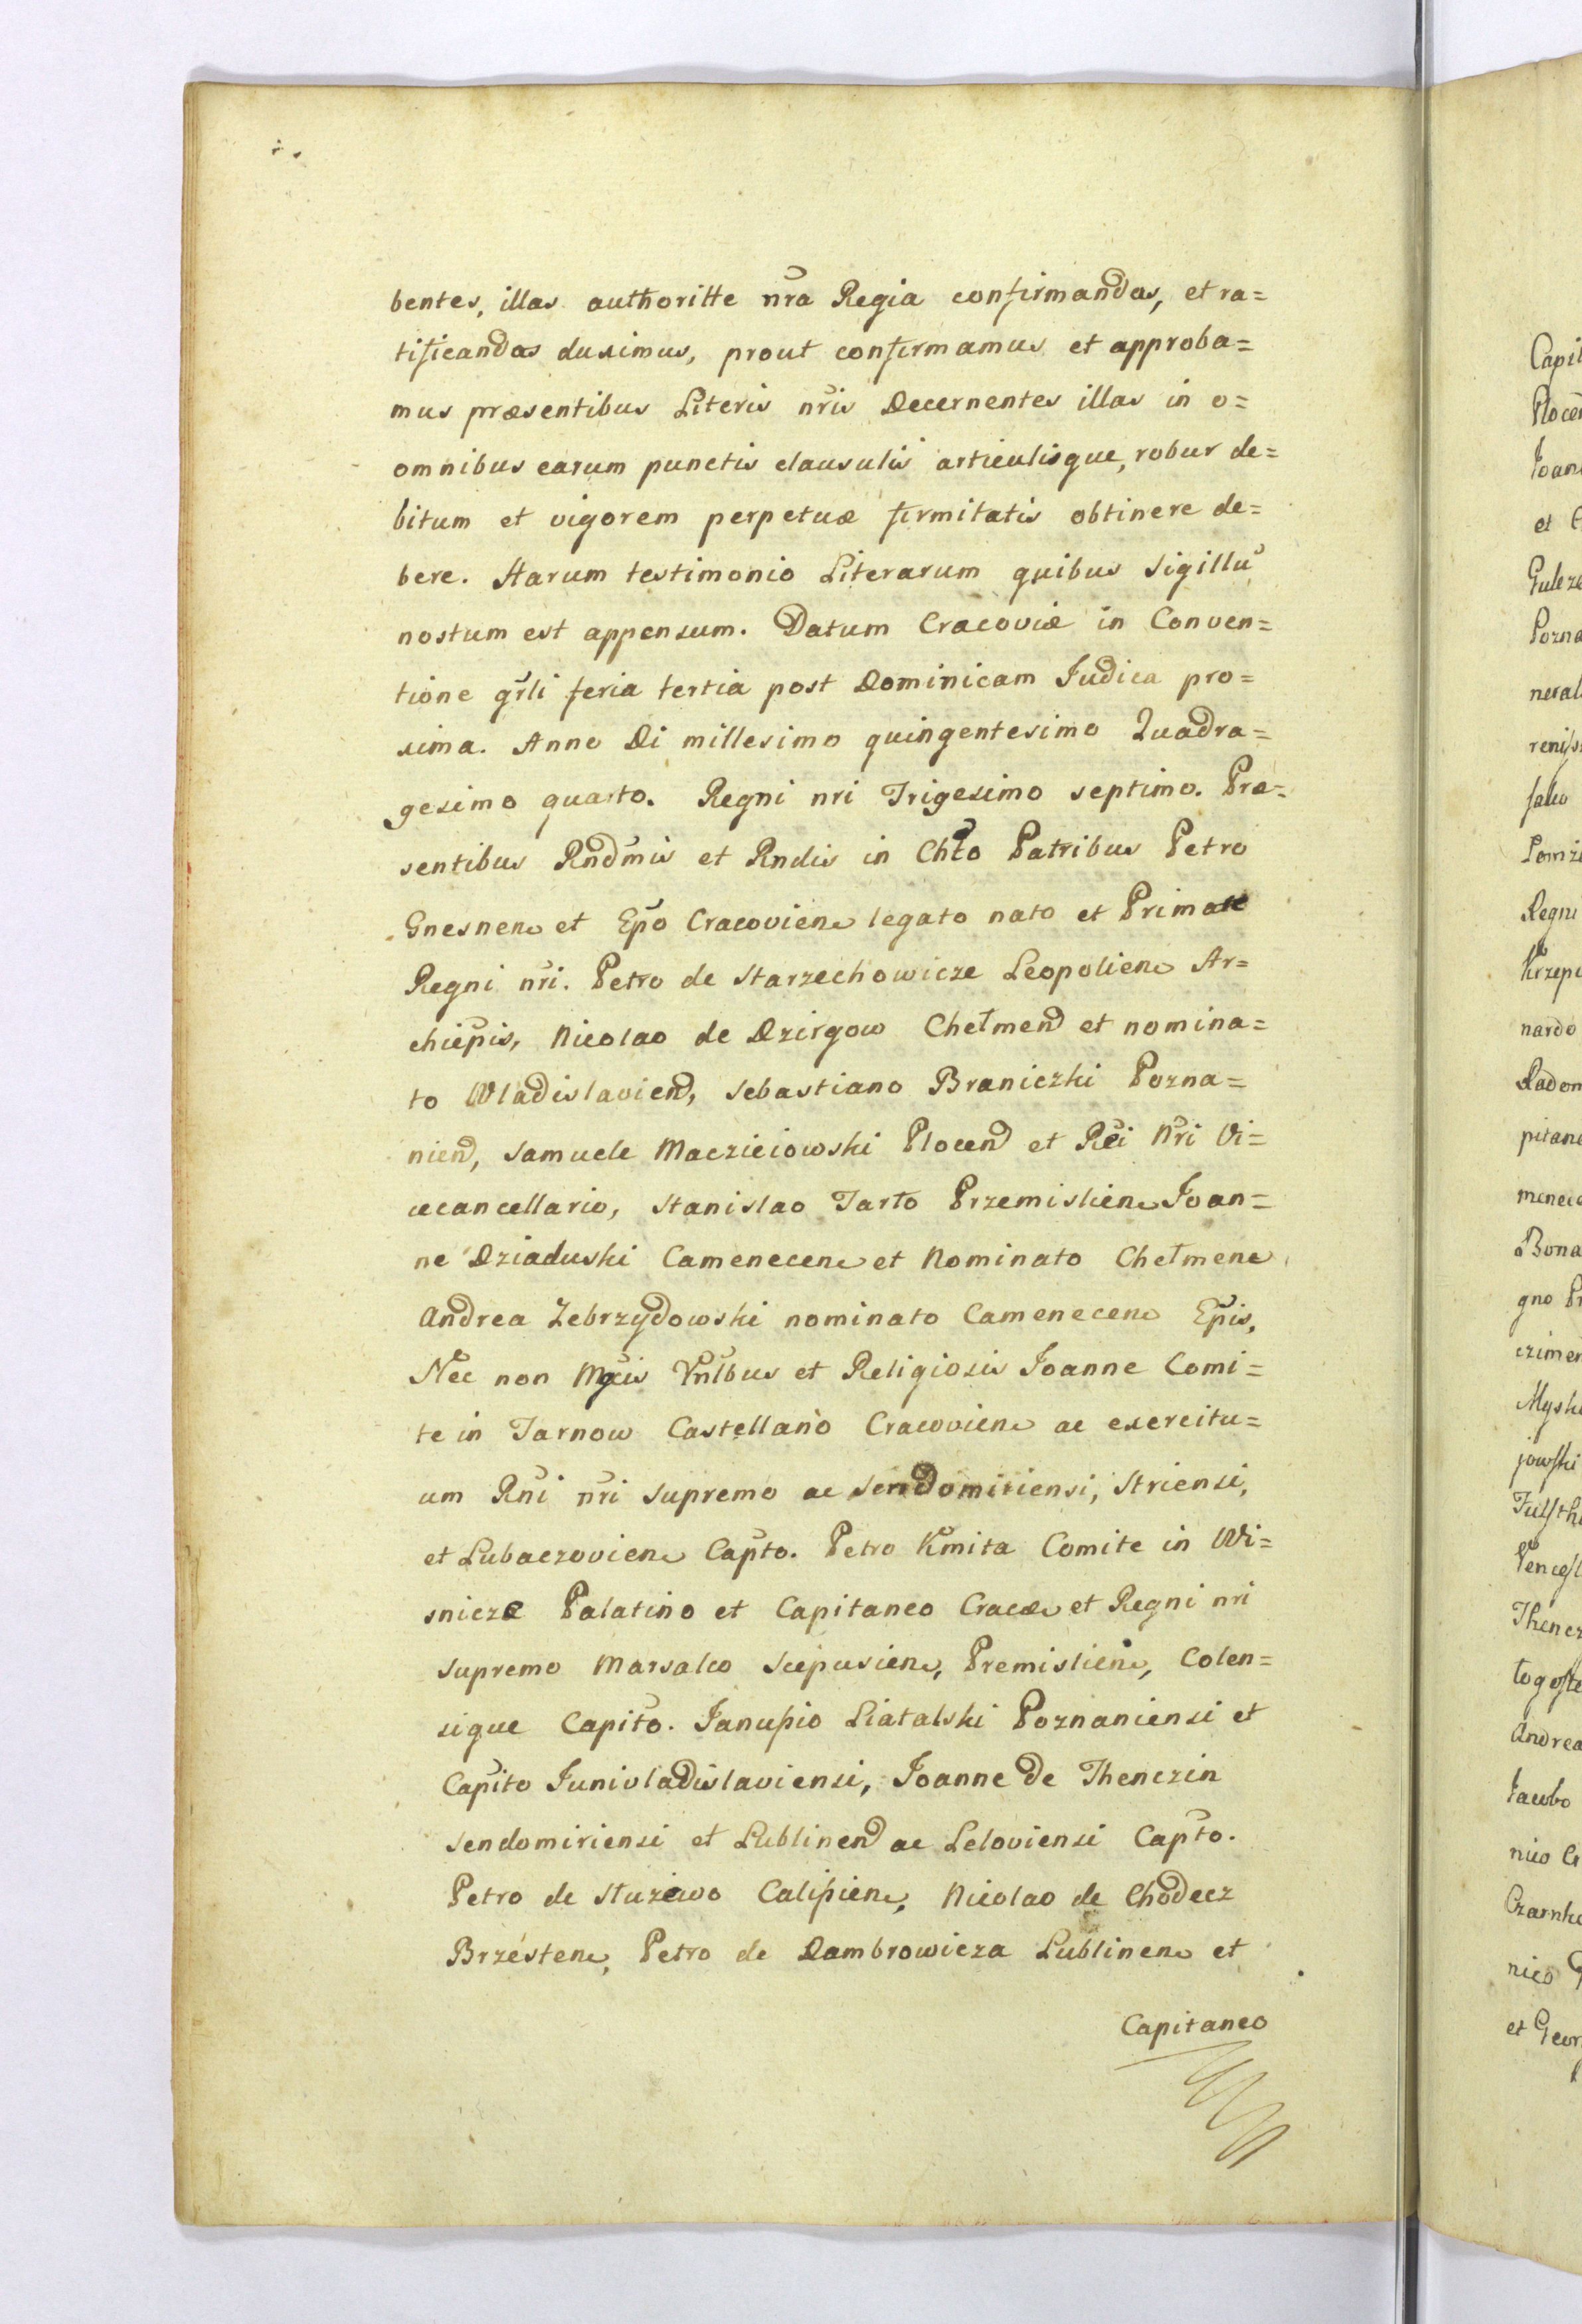 bentes, illas authoritte nra Regia confirmandas, et ra=
tificandas duximus, prout confirmamus et approba=
mus præsentibus Literis nris Decernentes illas in o=
omnibus earum punctis clausulis articulisque, robur de=
bitum et vigorem perpetuæ firmitatis obtinere de=
bere. Harum testimonio Literarum quibus Sigillu
nostum est appensum. Datum Cracoviæ in Conven=
tione grli feria tertia post Dominicam Iudica pro=
xima. Anno Di millesimo quingentesimo Quadra=
gesimo quarto. Regni nri Trigesimo septimo. Præ=
sentibus Rndmis et Rndis in Chto Patribus Petro
Gnesnen et Epo Cracovien legato nato et Primate
Regni nri. Petro de Starzechowicze Leopolien Ar=
chiepis, Nicolao de Dzirgow Chełmen et nomina=
to Wladislavien, Sebastiano Braniczki Pozna=
nien, Samuele Macziciowski Plocen et Rei Nri Vi=
cecancellario, Stanislao Tarło Przemislien Ioan=
ne Dziaduski Camenecen et Nominato Chełmen
Andrea Zebrzydowski nominato Camenecen Epis,
Nec non Mgcis Vnlbus et Religiosis Joanne Comi=
te in Tarnow Castellano Cracovien ac exercitu=
um Rni nri Supremo ac Sendomiriensi, Striensi,
et Lubaczovien Capto. Petro Kmita Comite in Wi=
snicze Palatino et Capitaneo Cracæ et Regni nri
Supremo Marsalco Scepusien, Premislien, Colen=
sique Capito. Ianußio Liatalski Poznaniensi et
Capito Junivladislaviensi, Joanne de Thenczin
Sendomiriensi et Lublinen ac Leloviensi Capto.
Petro de Sluzewo Calißien, Nicolao de Chodecz
Brzesten, Petro de Dambrowicza Lublinen et
Capitaneo
Capit
Ploce
Ioan
et
Gulcze
Pozna
neral
reniss
falco
Lomzi
Regni
Krzepi
nardo
Radom
pitane
menec
Bona
gno
czimer
Mysk
jowski
Thencz
togoste
Andrea
Iacobo
nico
Czarnk
nico
et Geor